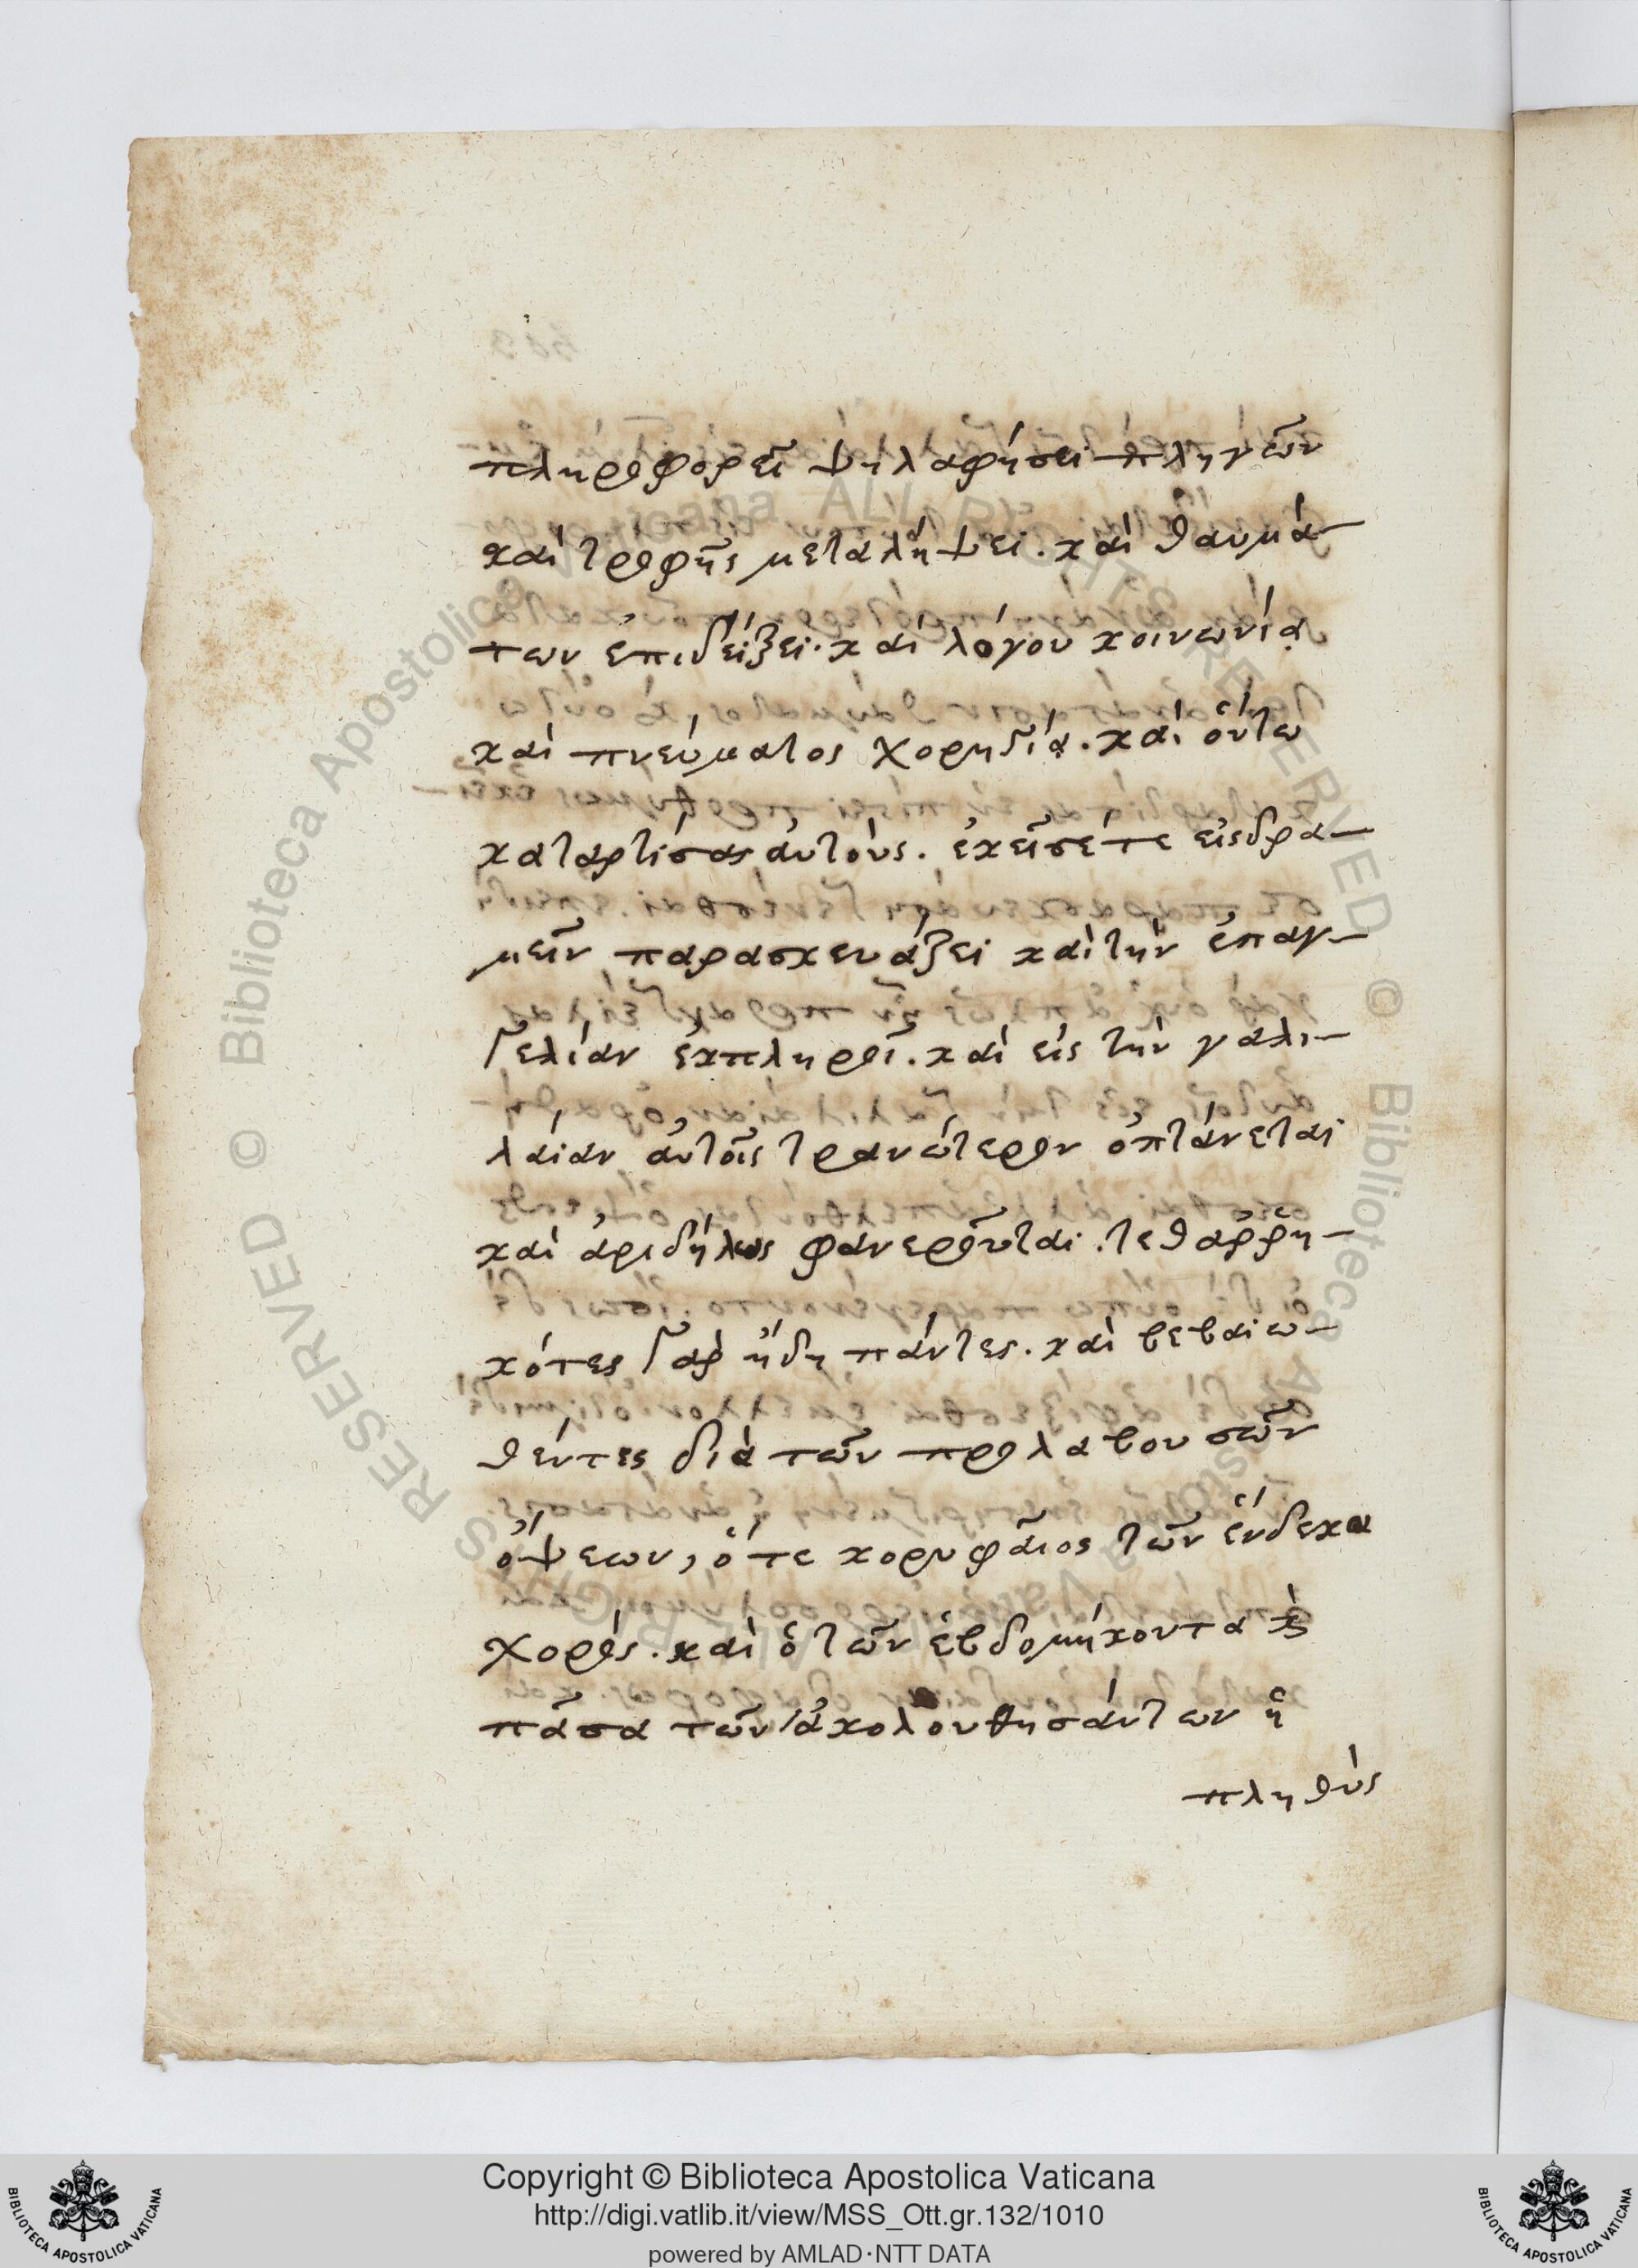 πληροφορεῖ ψηλαφήσει πληγῶν
καὶ τροφῆς μεταλήψει. καὶ θαυμά-
των ἐπιδείξει. καὶ λόγου κοινωνίᾳ
καὶ πνεύματος χορηγίᾳ. καὶ οὕτω
καταρτίσας αὐτοὺς. ἐκεῖσέ τε εἰσδρα-
μεῖν παρασκευάζει καὶ τὴν ἐπαγ-
γελίαν ἐκπληροῖ. καὶ εἰς τὴν γαλι-
λαίαν αὐτοῖς τρανώτερον ὀπτάνεται
καὶ ἀριδήλως φανεροῦται. τεθαῤῥη-
κότες γὰρ ἤδη πάντες. καὶ βεβαιω-
θέντες διὰ τῶν προλαβουσῶν
ὄψεων, ὅ τε κορυφαῖος τῶν ἕνδεκα
χορός. καὶ ὁ τῶν ἑβδομήκοντα καὶ
πᾶσα τῶν ἀκολουθησάντων ἡ
πληθὺς
Copyright © Biblioteca Apostolica Vaticana
http://digi.vatlib.it/view/MSS_Ott.gr.132/1010
powered by AMLAD·NTT DATA
BIBLIOTECA APOSTOLICA VATICANA
BIBLIOTECA APOSTOLICA VATICANA